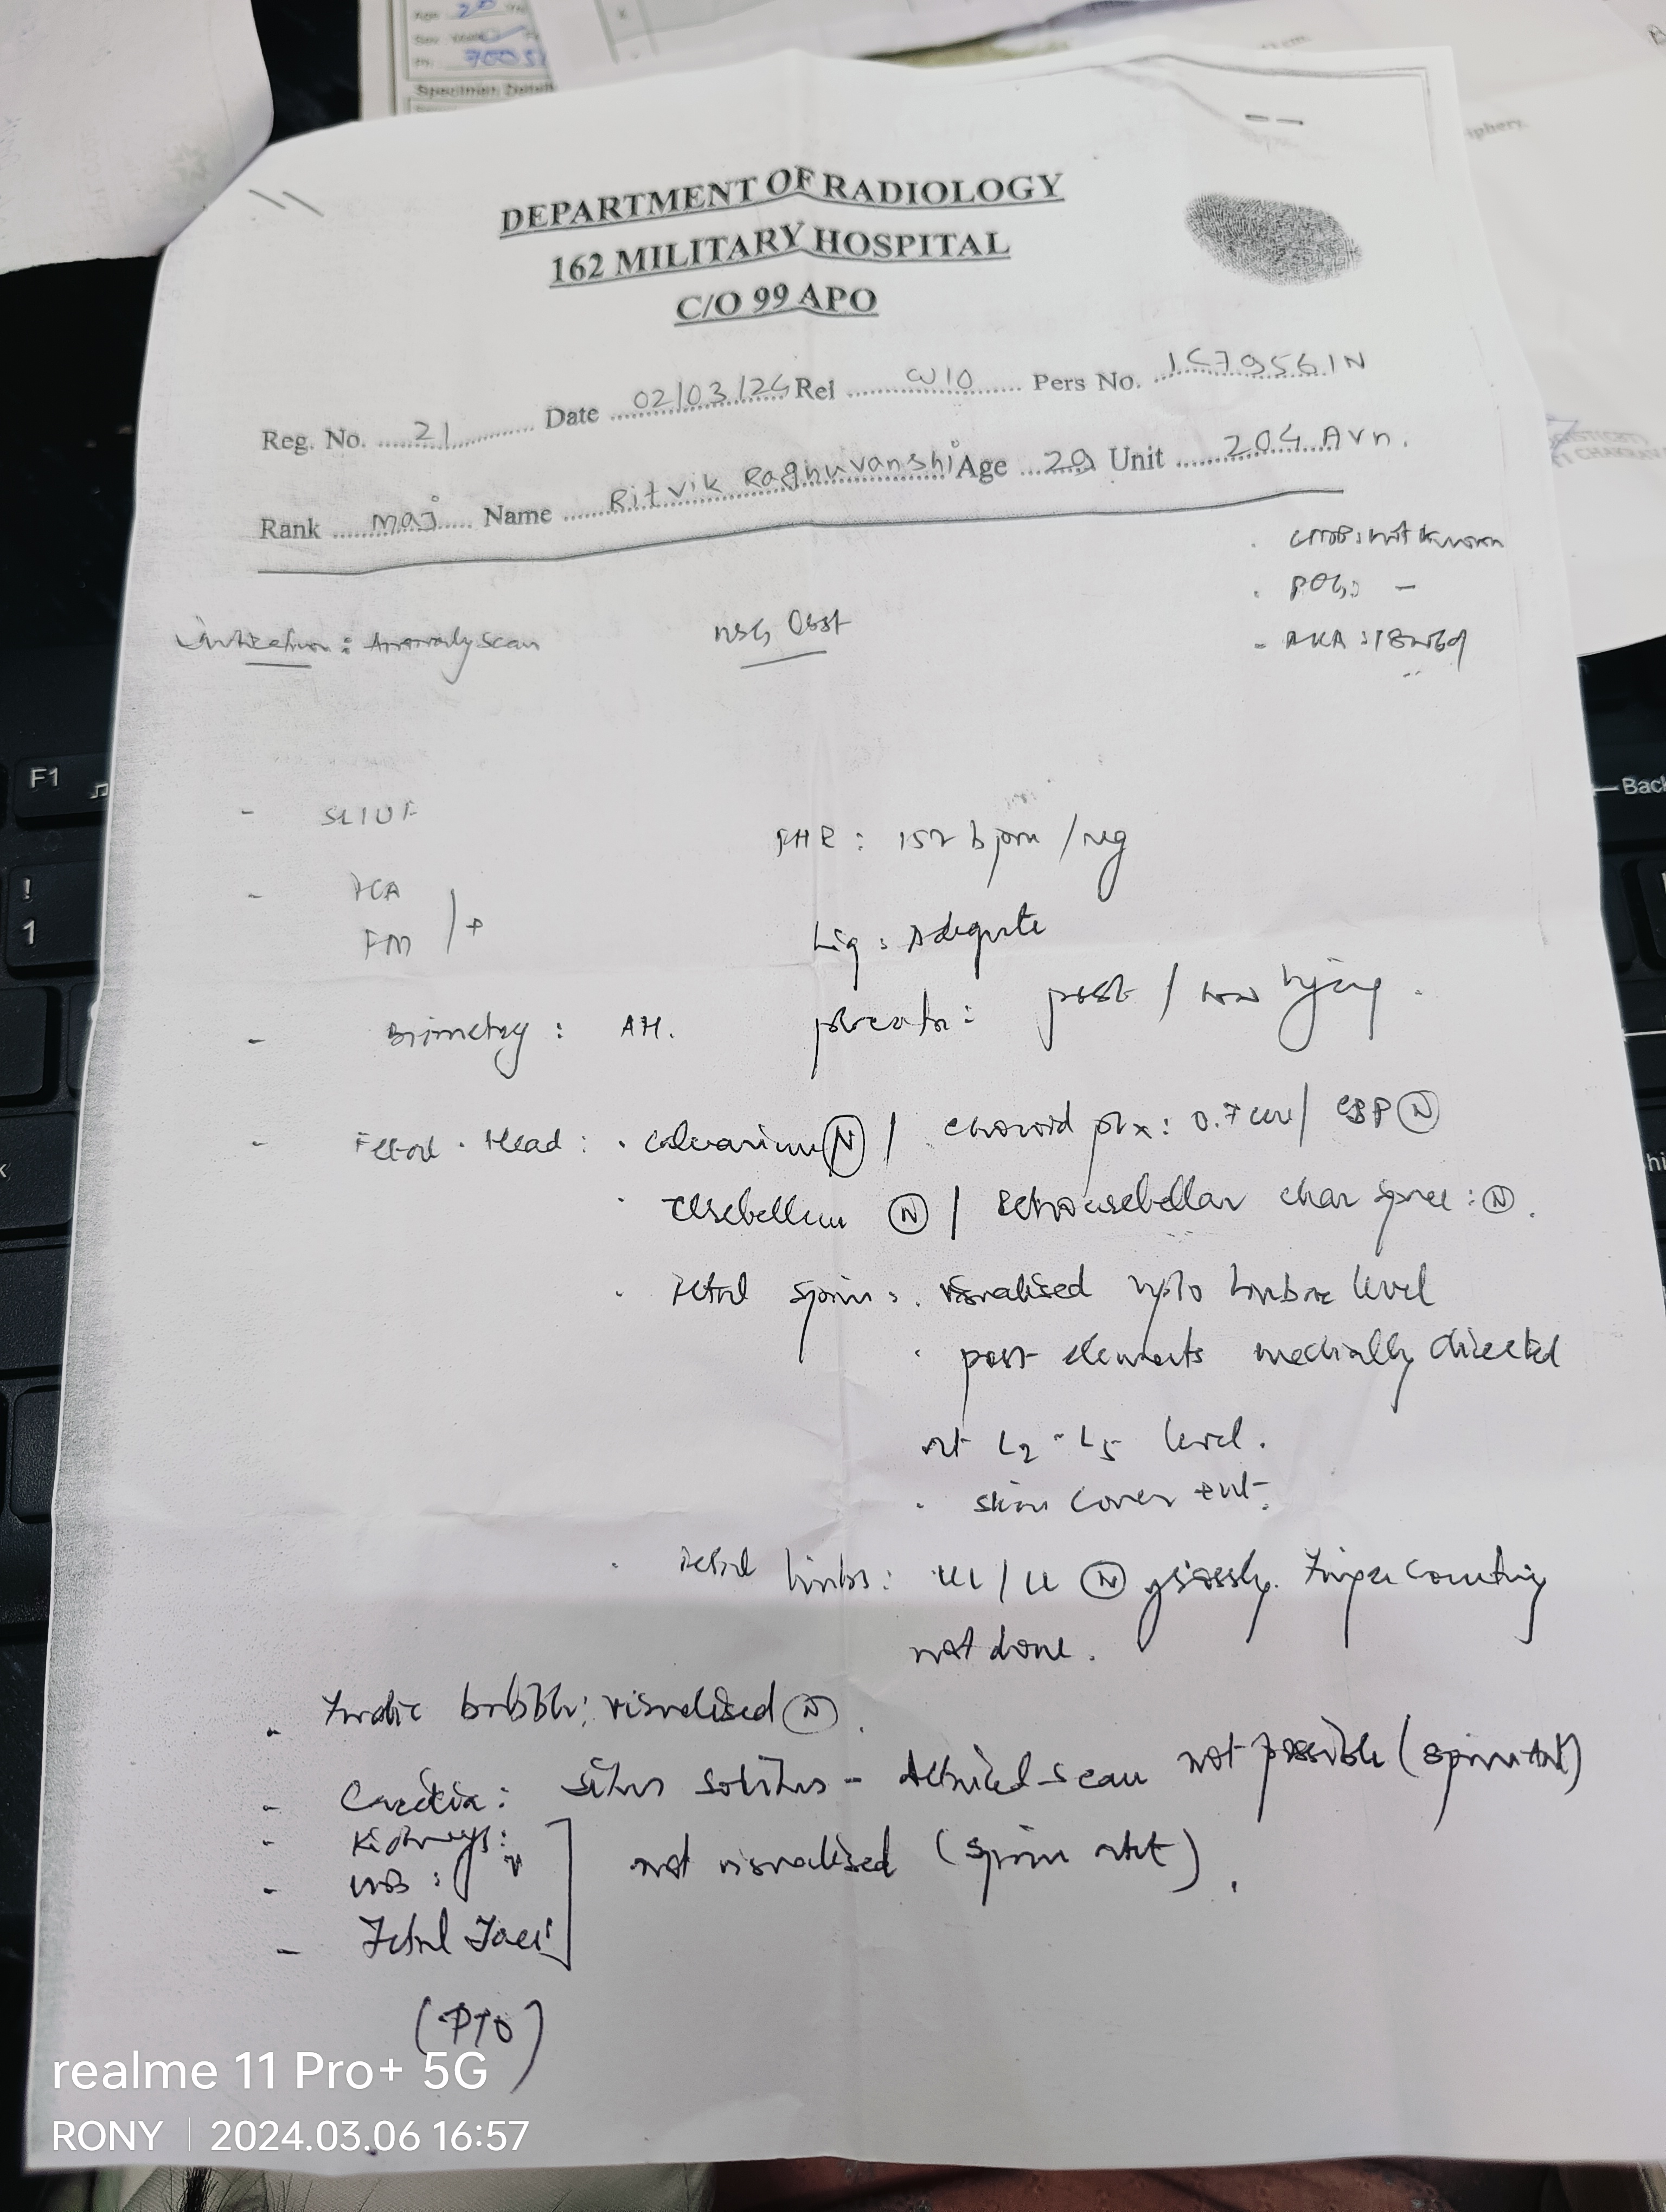 Specimen Details
DEPARTMENT OF RADIOLOGY
162 MILITARY HOSPITAL
C/O 99 APO
Reg. No. 21 Date 02/03/24 Rel W/O Pers No. IC79561N
Rank Maj Name Ritvik Raghuvanshi Age 29 Unit 204 Avn.
LMP: not known
POG: -
Indication: Anomaly scan
USG Obst
- AUA: 18w6d
- SLIUF
FHR: 152 bpm/reg
- FCA
FM /+
Liq: Adequate
- Biometry: AH.
placenta: post / low lying.
- Fetal Head: . calvarium (N) / choroid plx: 0.7 cm / CSP (N)
. cerebellum (N) / Retrocerebellar clear space: (N).
. Fetal spine: . visualised upto lumbar level
. post elements medially directed
at L2-L5 level.
. skin cover
. Fetal limbs: UL/LL (N) grossly. Finger counting
not done.
- bubble: visualised (N).
- Cardia: situs solitus - detailed scan not possible (spine ant)
- Kidneys:
- UB:
not visualised (spine ant).
- Fetal Face:
(PTO)
realme 11 Pro+ 5G
RONY | 2024.03.06 16:57
F1
!
1
Back